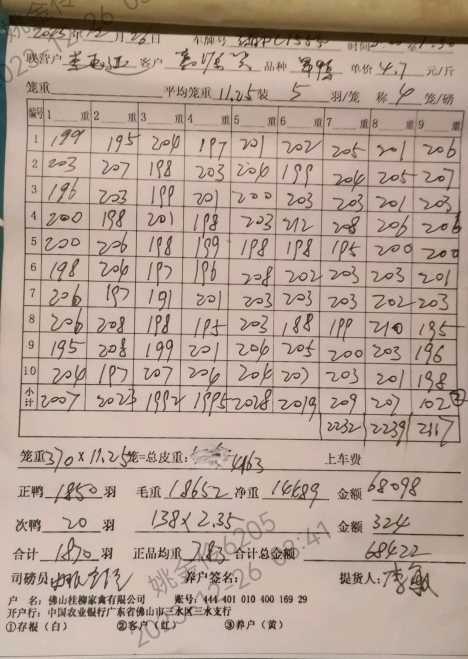 2023年12月26日 车牌号 时间
联营户 客户 品种 单价 4.7 元/斤
笼重 平均笼重 11.25 装 5 羽/笼 称 4 笼/磅
编号 1 重 2 重 3 重 4 重 5 重 6 重 7 重 8 重 9 重
1 199 195 204 197 201 202 205 201 206
2 203 207 198 203 204 199 204 205 207
3 196 203 199 201 200 203 203 201 203
4 200 198 201 198 203 212 208 206 206
5 200 206 198 199 198 198 195 200 200
6 198 206 197 196 208 202 203 203 201
7 206 197 191 201 203 203 203 202 203
8 206 208 198 195 203 188 199 210 195
9 195 208 199 201 204 205 200 203 196
10 204 197 207 204 204 207 203 201 198
小计 2007 2023 1992 1995 2028 2019 209 207 102 ②
2232 2239 2117
笼重 370 × 11.25 笼=总皮重: 4163 上车费
正鸭 1850 羽 毛重 18652 净重 14489 金额 68098
次鸭 20 羽 138×2.35 金额 324
合计 1870 羽 正品均重 7.83 合计总金额 68422
司磅员 养户签名: 提货人:
户 名: 佛山桂柳家禽有限公司 账号: 444-401 010 400 169 29
开户行: 中国农业银行广东省佛山市三水区三水支行
①存根(白) ②客户(红) ③养户(黄)